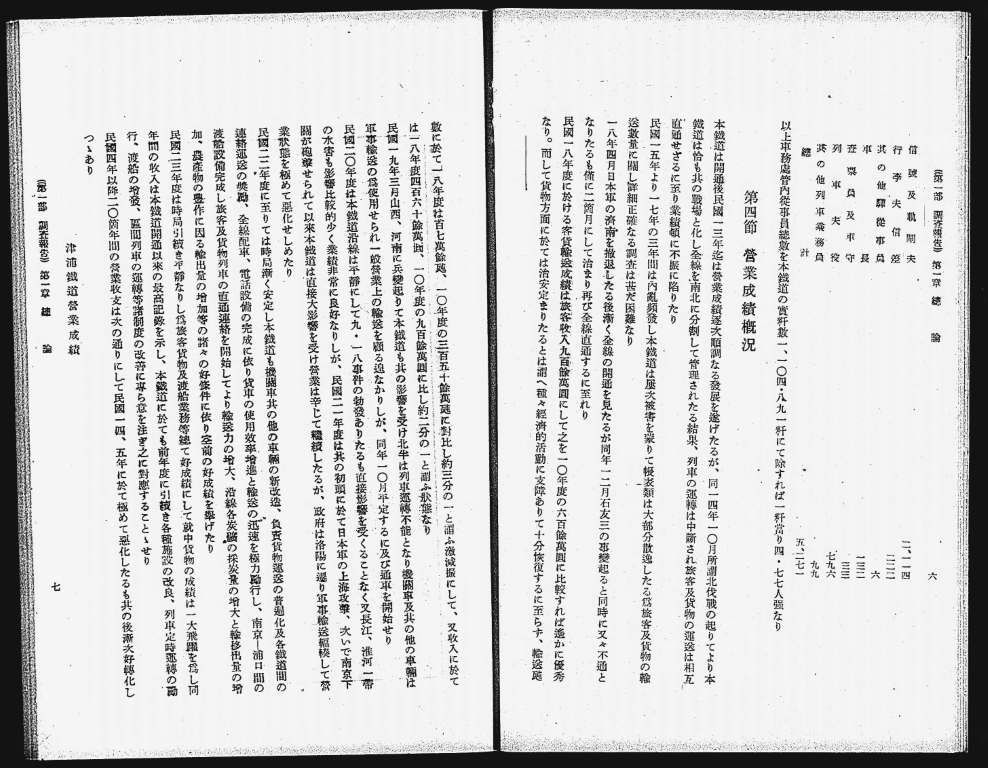 (第一部 調査報告) 第一章 總論
六
信號及轉閘夫 二、一一四
行李夫信差 二二二
其の他驛從事員 六
車長 一三二
査票員及車守 三三
列車夫役 七九六
其の他列車乘務員 九九
總計 五、二七一
以上車務處管内從事員總數を本鐵道の實粁數一、一〇四・八九一粁にて除すれば一粁當り四・七七人强なり
第四節 營業成績概況
本鐵道は開通後民國一三年迄は營業成績逐次順調なる發展を遂げたるが、同一四年一〇月所謂北伐戰の起りてより本
鐵道は恰も其の戰場と化し全線を南北に分割して管理されたる結果、列車の運轉は中斷され旅客及貨物の運送は相互
直通せざるに至り業績頓に不振に陷りたり
民國一五年より一七年の三年間は内亂頻發し本鐵道は屢次被害を蒙りて帳表類は大部分散逸したる爲旅客及貨物の輸
送數量に關し詳細正確なる調査は甚だ困難なり
一八年四月日本軍の濟南を撤退したる後漸く全線の開通を見たるが同年一二月石友三の事變起ると同時に又々不通と
なりたるも僅に二箇月にして治まり再び全線直通するに至れり
民國一八年度に於ける客貨輸送成績は旅客收入九百餘萬圓にして之を一〇年度の六百餘萬圓に比較すれば遙かに優秀
なり。而して貨物方面に於ては治安定まりたるとは謂へ種々經濟的活動に支障ありて十分恢復するに至らず、輸送噸
數に於て一八年度は百七萬餘噸、一〇年度の三百五十餘萬噸に對比し約三分の一と謂ふ激減振にして、又收入に於て
は一八年度四百六十餘萬圓、一〇年度の九百餘萬圓に比し約二分の一と謂ふ狀態なり
民國一九年三月山西、河南に兵變起りて本鐵道も其の影響を受け北半は列車運轉不能となり機關車及其の他の車輛は
軍事輸送の爲使用せられ一般營業上の輸送を顧る遑なかりしが、同年一〇月平定するに及び通車を開始せり
民國二〇年度は本鐵道沿線は平靜にして九・一八事件の勃發ありたるも直接影響を受くることなく又長江、淮河一帶
の水害も影響比較的少く業績非常に良好なりしが、民國二一年度は其の初頭に於て日本軍の上海攻擊、次いで南京下
關が砲擊せられて以來本鐵道は直接大影響を受け營業は辛じて繼續したるが、政府は洛陽に遷り軍事輸送輻輳して營
業狀態を極めて惡化せしめたり
民國二二年度に至りては時局漸く安定し本鐵道も機關車其の他の車輛の新改造、負責貨物運送の普遍化及各鐵道間の
連絡運送の獎勵、全線配車、電話設備の完成に依り貨車の使用效率增進と輸送の迅速を極力勵行し、南京—浦口間の
渡船設備完成し旅客及貨物列車の直通連絡を開始してより輸送力の增大、沿線各炭礦の採炭量の增大と輸移出量の增
加、農產物の豐作に因る輸出量の增加等の諸々の好條件に依り空前の好成績を擧げたり
民國二三年度は時局引續き平靜なりし爲旅客貨物及渡船業務等總て好成績にして就中貨物の成績は一大飛躍を爲し同
年間の收入は本鐵道開通以來の最高記錄を示し、本鐵道に於ても前年度に引續き各種施設の改良、列車定時運轉の勵
行、渡船の增發、區間列車の運轉等諸制度の改善に專ら意を注ぎ之に對應することゝせり
民國四年以降二〇箇年間の營業收支は次の通りにして民國一四、五年に於て極めて惡化したるも其の後漸次好轉化し
つゝあり
津浦鐵道營業成績
(第一部 調査報告) 第一章 總論
七